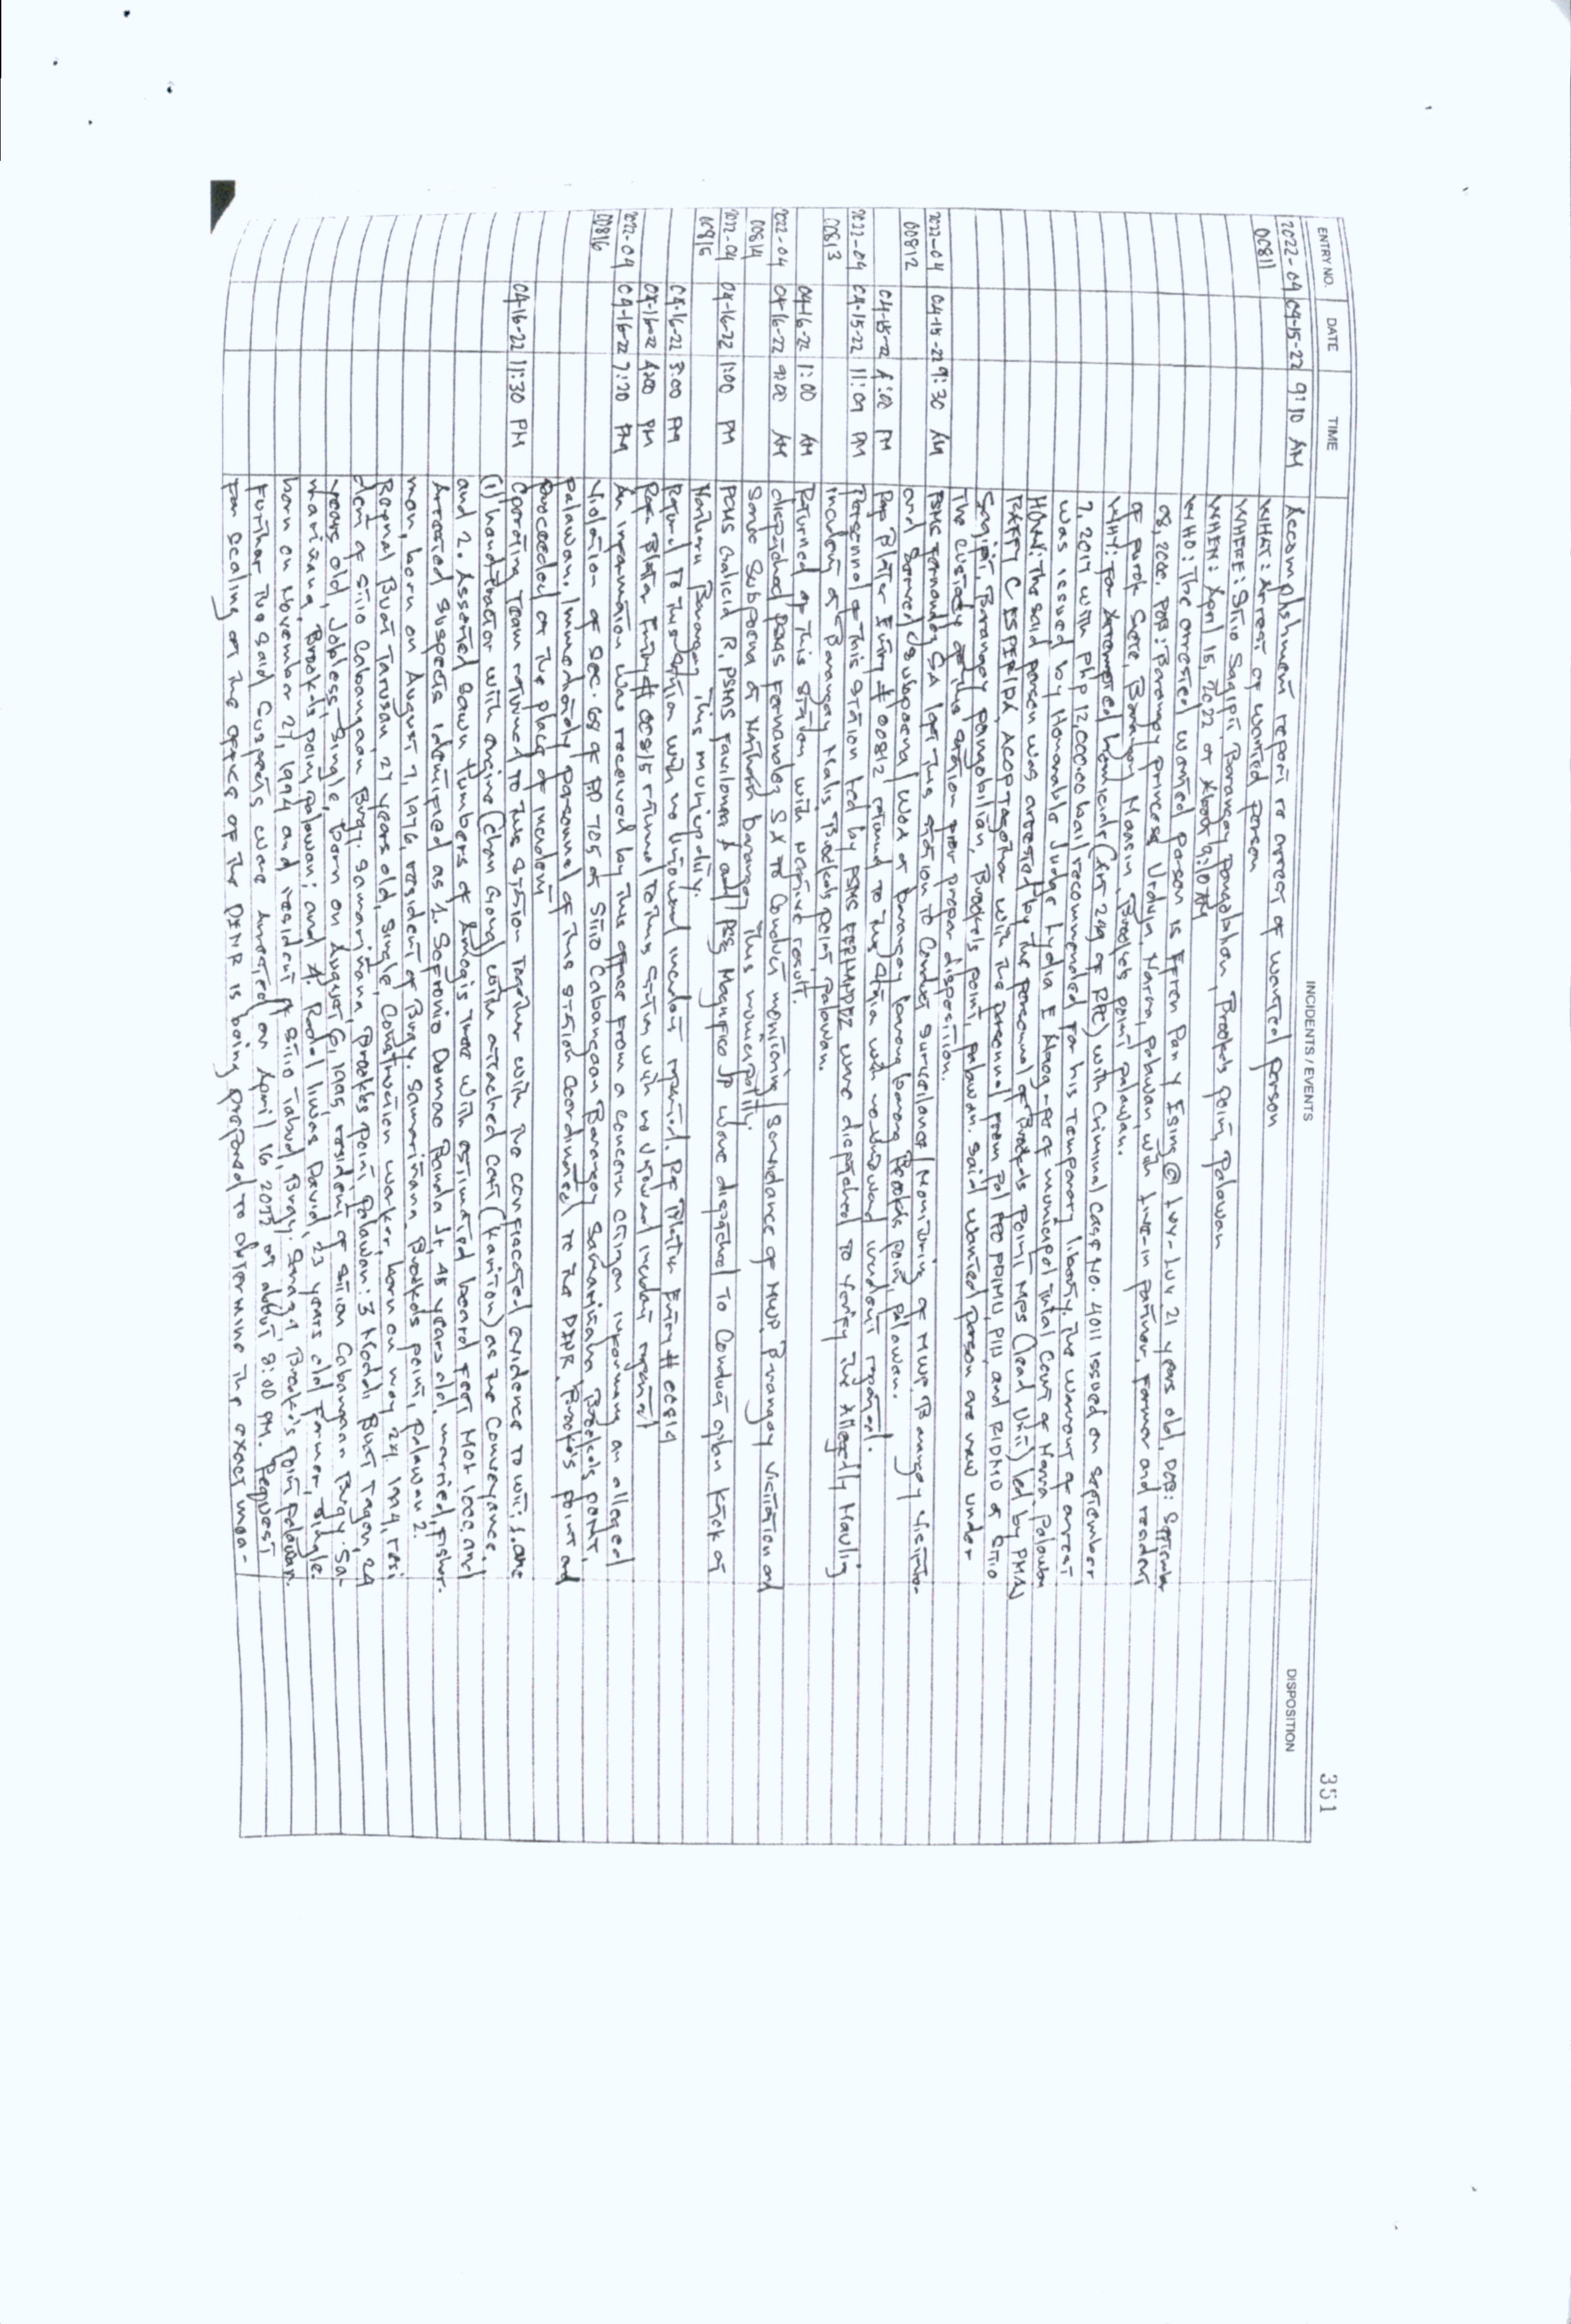 351
ENTRY NO. DATE TIME INCIDENTS / EVENTS DISPOSITION
2022-04 04-15-22 9:10 AM Accomplishment report re arrest of wanted person
00811 WHAT: Arrest of wanted person
WHERE: Sitio Sagipit, Barangay Pangobilian, Brooke's Point, Palawan
WHEN: April 15, 2022 at about 9:10 AM
WHO: The arrested wanted person is Efren Pan y Ising @ 21 years old, DOB: September
08, 2000, POB: Barangay princess Urduja, Narra, palawan, with live-in partner, Farmer and resident
of purok Barangay Maasin, Brooke's point palawan.
WHY: For Attempted homicide (Art 249 of RPC) with Criminal Case No. 4011 issued on september
7, 2017 with Php 12,000.00 bail recommended for his temporary liberty. The warrant of arrest
was issued by Honorable Judge Lydia E of municipal Trial Court of Narra Palawan
HOW: The said person was arrested by the personnel of Brooke's Point MPS (lead unit) led by PMAJ
RAFFY C together with the personnel from PPO PDMU, PIU, and RIDMD at Sitio
Sagipit, Barangay pangobilian, Brooke's point, palawan. Said wanted person are now under
the custody of this station for proper disposition.
2022-04 04-15-22 9:30 AM PSMS Fernandez SA left this station to conduct surveillance/ monitoring of MWP, Barangay visitation
00812 and served subpoena/ WOA at barangay Brooke's point, palawan.
04-15-22 4:00 PM Rep Blotter Entry # 00812 returned to this station with no untoward incident reported.
2022-04 04-15-22 11:09 PM Personnel of this station led by PSMS were dispatched to verify the allegedly Mauling
00813 incident at Barangay Malis Brooke's point palawan.
04-16-22 1:00 AM Returned of this station with negative result.
2022-04 04-16-22 9:00 AM dispatched PSMS Fernandez SA to conduct monitoring/ surveillance of MWP, Barangay visitation and
00814 serve subpoena at barangay this municipality.
2022-04 04-16-22 1:00 PM PCMS Galicia R, PSMS and PSSg Magnifico JP were dispatched to conduct oplan kick at
00815 barangay, this municipality.
04-16-22 3:00 PM Returned to this station with no untoward incident reported. Ref Blotter Entry # 00814
04-16-22 4:00 PM Ref: Blotter Entry # 00815 returned to this station with no untoward incident reported
2022-04 04-16-22 7:20 PM An information was received by this office from a concern citizen informing an alleged
00816 violation of Sec. 68 of PD 705 at Sitio Cabangaan Barangay Samariñana Brooke's point,
palawan. Immediately personnel of this station coordinated to the DENR, Brooke's point and
proceeded at the place of incident
04-16-22 11:30 PM Operating team returned to this station together with the confiscated evidence to wit; 1. one
(1) handtractor with engine (Chan Gong) with attached cart (kariton) as the conveyance,
and 2. Assorted sawn lumbers of Amogis tree with estimated board feet More 1000 and
Arrested suspects identified as 1. Sofronio Damao Banda Jr, 45 years old, married, Fisher-
man, born on August 7, 1976, resident of Brgy. Samariñana, Brooke's point, Palawan 2.
Reynal Buat Tarusan, 27 years old, single, Construction worker, born on may 24, 1994, resi
dent of sitio Cabangaan Brgy. Samariñana, Brooke's Point Palawan: 3 Buat Tagen, 24
years old, jobless, single, born on August 6, 1998, resident of sition Cabangaan Brgy. Sa-
mariñana, Brooke's point palawan; and 4. Rodel liwas David, 23 years old Farmer, single,
born on November 27, 1994 and resident of sitio Brgy. Brooke's Point palawan.
Further the said suspects were arrested on April 16 2022 at about 8:00 PM. Request
For scaling at the office of the DENR is being prepared to determine the exact mea-